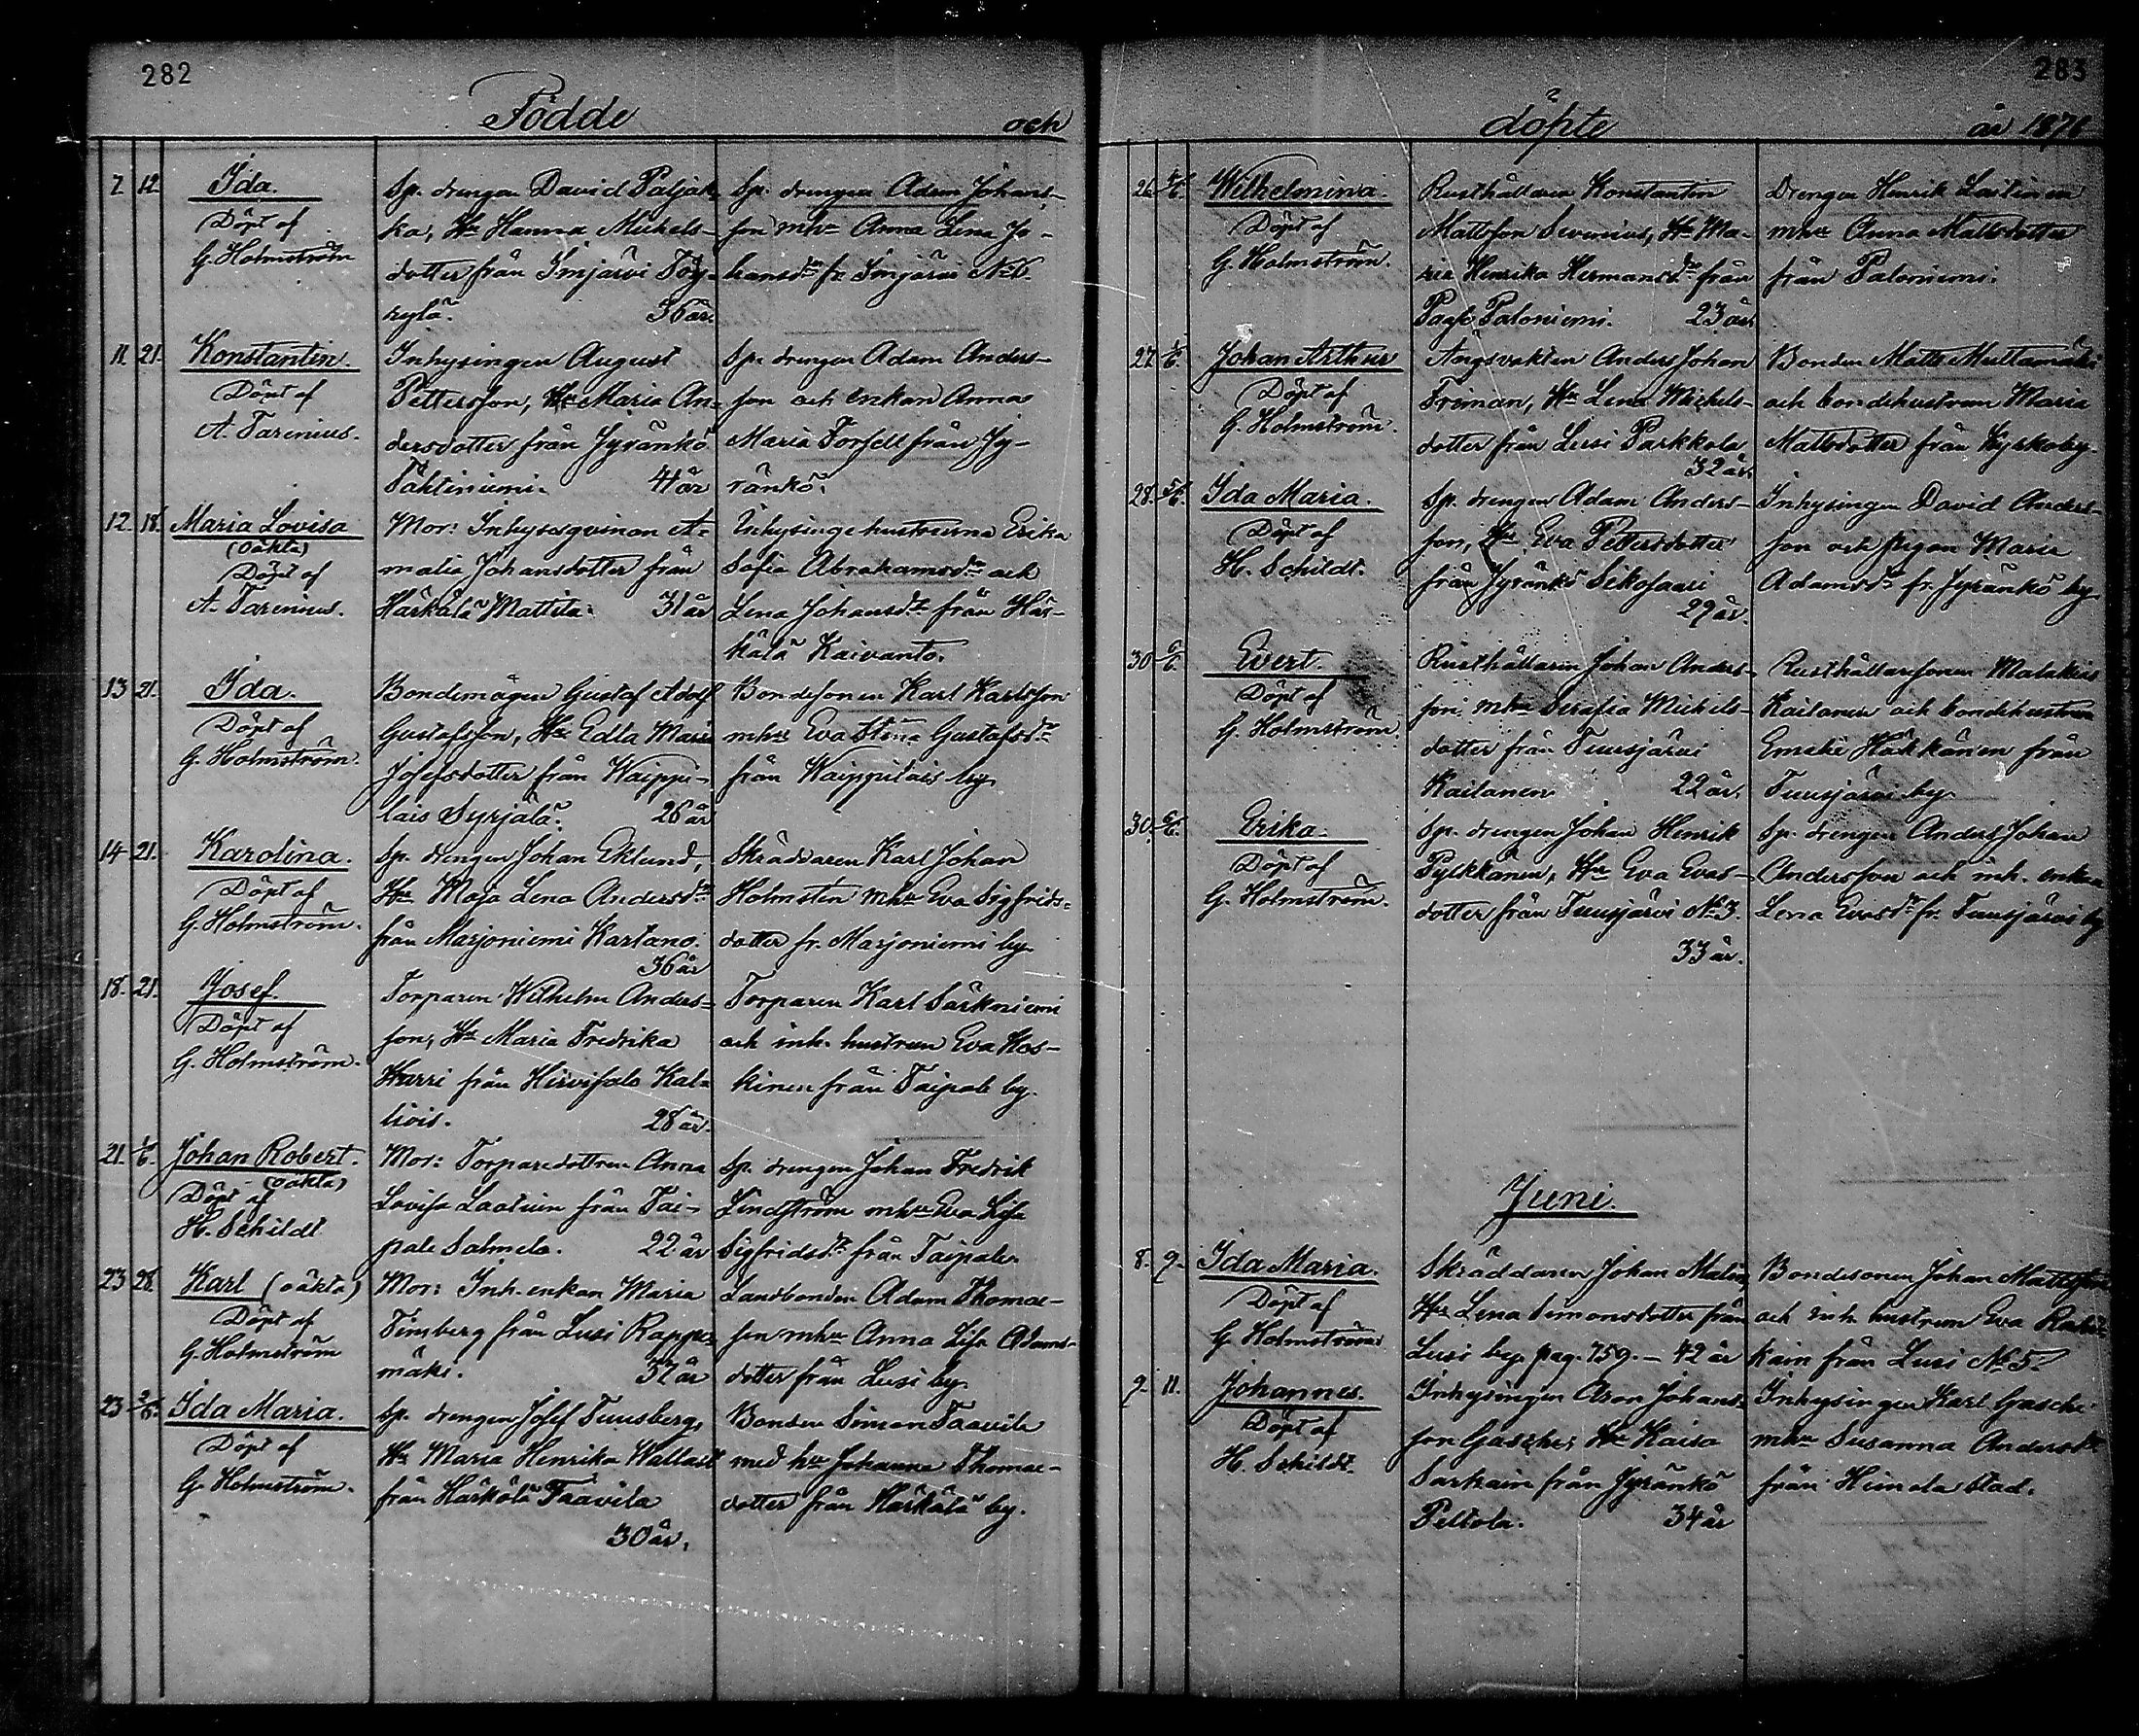 282
Födde och
7. 12. Ida.
Döpt af
G. Holmström
Sp. drengen David Paljak-
ka, Hu Hanna Mickels-
dotter från Imjärvi Töy-
rylä. 36 år.
Sp. drengen Adam Johans-
son mhu Anna Lena Jo-
hansdr fr. Imjärvi No 6.
11. 21. Konstantin.
Döpt af
A. Tarenius.
Inhysingen August
Pettersson, Hu Maria An-
dersdotter från Jyränkö
Tähtiniemi. 41 år
Sp. drengen Adam Anders-
son och enkan Anna
Maria Forsell från Jy-
ränkö.
12. 18. Maria Lovisa
(oäkta)
Döpt af
A. Tarenius.
Mor: Inhysesqvinnan A-
malia Johansdotter från
Härkälä Mattila. 31 år
Inhysingehustrurna Erika
Sofia Abrahamsdr och
Lena Johansdr från Här-
kälä Kaivanto.
13 21. Ida.
Döpt af
G. Holmström.
Bondemågen Gustaf Adolf
Gustafsson, Hu Edla Maria
Josefsdotter från Waippi-
lais Syrjälä. 26 år
Bondesonen Karl Karlsson
mhu Eva Stina Gustafsdr
från Waippilais by.
14 21. Karolina.
Döpt af
G. Holmström.
Sp. drengen Johan Eklund,
Hu Maja Lena Andersdr
från Marjoniemi Kartano.
36 år
Skräddaren Karl Johan
Holmsten mhu Eva Sigfrids-
dotter fr. Marjoniemi by.
18. 21. Josef.
Döpt af
G. Holmström.
Torparen Wilhelm Anders-
son, Hu Maria Fredrika
Harri från Hirvisalo Kal-
liois. 28 år.
Torparen Karl Särkniemi
och inh. hustrun Eva Kos-
kinen från Taipale by.
21. 1/6. Johan Robert.
(oäkta)
Döpt af
H. Schildt
Mor: Torparedottren Anna
Lovisa Laatuin från Tai-
pale Salmela. 22 år
Sp. drengen Johan Fredrik
Lindström mhu Eva Lisa
Sigfridsdr från Taipale.
23 28. Karl (oäkta)
Döpt af
G. Holmström
Mor: Inh. enkan Maria
Timberg från Lusi Rappu-
mäki. 37 år
Landbonden Adam Thomas-
son mhu Anna Lisa Adams-
dotter från Lusi by.
23 2/6. Ida Maria.
Döpt af
G. Holmström.
Sp. drengen Josef Tuusberg,
Hu Maria Henrika Wallast
från Härkälä Taavila
30 år.
Bonden Simon Taavila
med hu Johanna Thomas-
dotter från Härkälä by.
283
döpte år 1876
26. 4/6. Wilhelmina.
Döpt af
G. Holmström.
Rusthållaren Konstantin
Mattsson Severius, Hu Ma-
ria Henrika Hermansdr från
Paaso Paloniemi. 23 år
Drengen Henrik Laitinen
mhu Anna Mattsdotter
från Paloniemi.
27. 1/6. Johan Arthur
Döpt af
G. Holmström.
Ångvakten Anders Johan
Friman, Hu Lena Michels-
dotter från Lusi Parkkola
32 år.
Bonden Matts Multamäki
och bondehustrun Maria
Mattsdotter från Kyrkoby.
28. 5/6. Ida Maria.
Döpt af
H. Schildt.
Sp. drengen Adam Anders-
son, Hu Eva Pettersdotter
från Jyränkö Sikosaari
29 år.
Inhysingen David Anders-
son och pigan Maria
Adamsdr fr. Jyränkö by.
30 6/6. Evert.
Döpt af
G. Holmström
Rusthållaren Johan Anders-
son, mhu Serafia Mickels-
dotter från Tuusjärvi
Kailanen 22 år.
Rusthållaresonen Malakias
Kailanen och bondehustrun
Emelie Häkkänen från
Tuusjärvi by.
30. 6/6. Erika.
Döpt af
G. Holmström.
Sp. drengen Johan Henrik
Pylkkänen, Hu Eva Evas-
dotter från Tuusjärvi No 3.
33 år.
Sp. drengen Anders Johan
Andersson och inh. enkan
Lena Evasdr fr. Tuusjärvi by
Juni.
8. 9. Ida Maria.
Döpt af
G. Holmström
Skräddaren Johan Malin,
Hu Lena Simonsdotter från
Lusi by. pag. 759. – 42 år
Bondesonen Johan Mattsson
och inh. hustrun Eva
kain från Lusi No 5.
9. 11. Johannes.
Döpt af
H. Schildt.
Inhysingen Aron Johans-
son Gasche, Hu Kaisa
Sarkain från Jyränkö
Peltola. 34 år
Inhysingen Karl Gasche
mhu Susanna Andersdr
från Heinola stad.